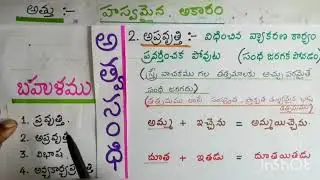 అత్తు :- హ్రస్వమైన అకారం
అత్వసంధి
బహుళము
1. ప్రవృత్తి
2. అప్రవృత్తి
3. విభాష
4. అన్యకార్యప్రవృత్తి
2. అప్రవృత్తి :- విధించిన వ్యాకరణ కార్యం
ప్రవర్తించక పోవుట (సంధి జరగక పోవడం)
(స్త్రీ వాచకముగల తత్సమాలకు అచ్చు పరమైతే
సంధి జరగదు)
అమ్మ + ఇచ్చెను = అమ్మయిచ్చెను.
దూత + ఇతడు = దూతయితడు